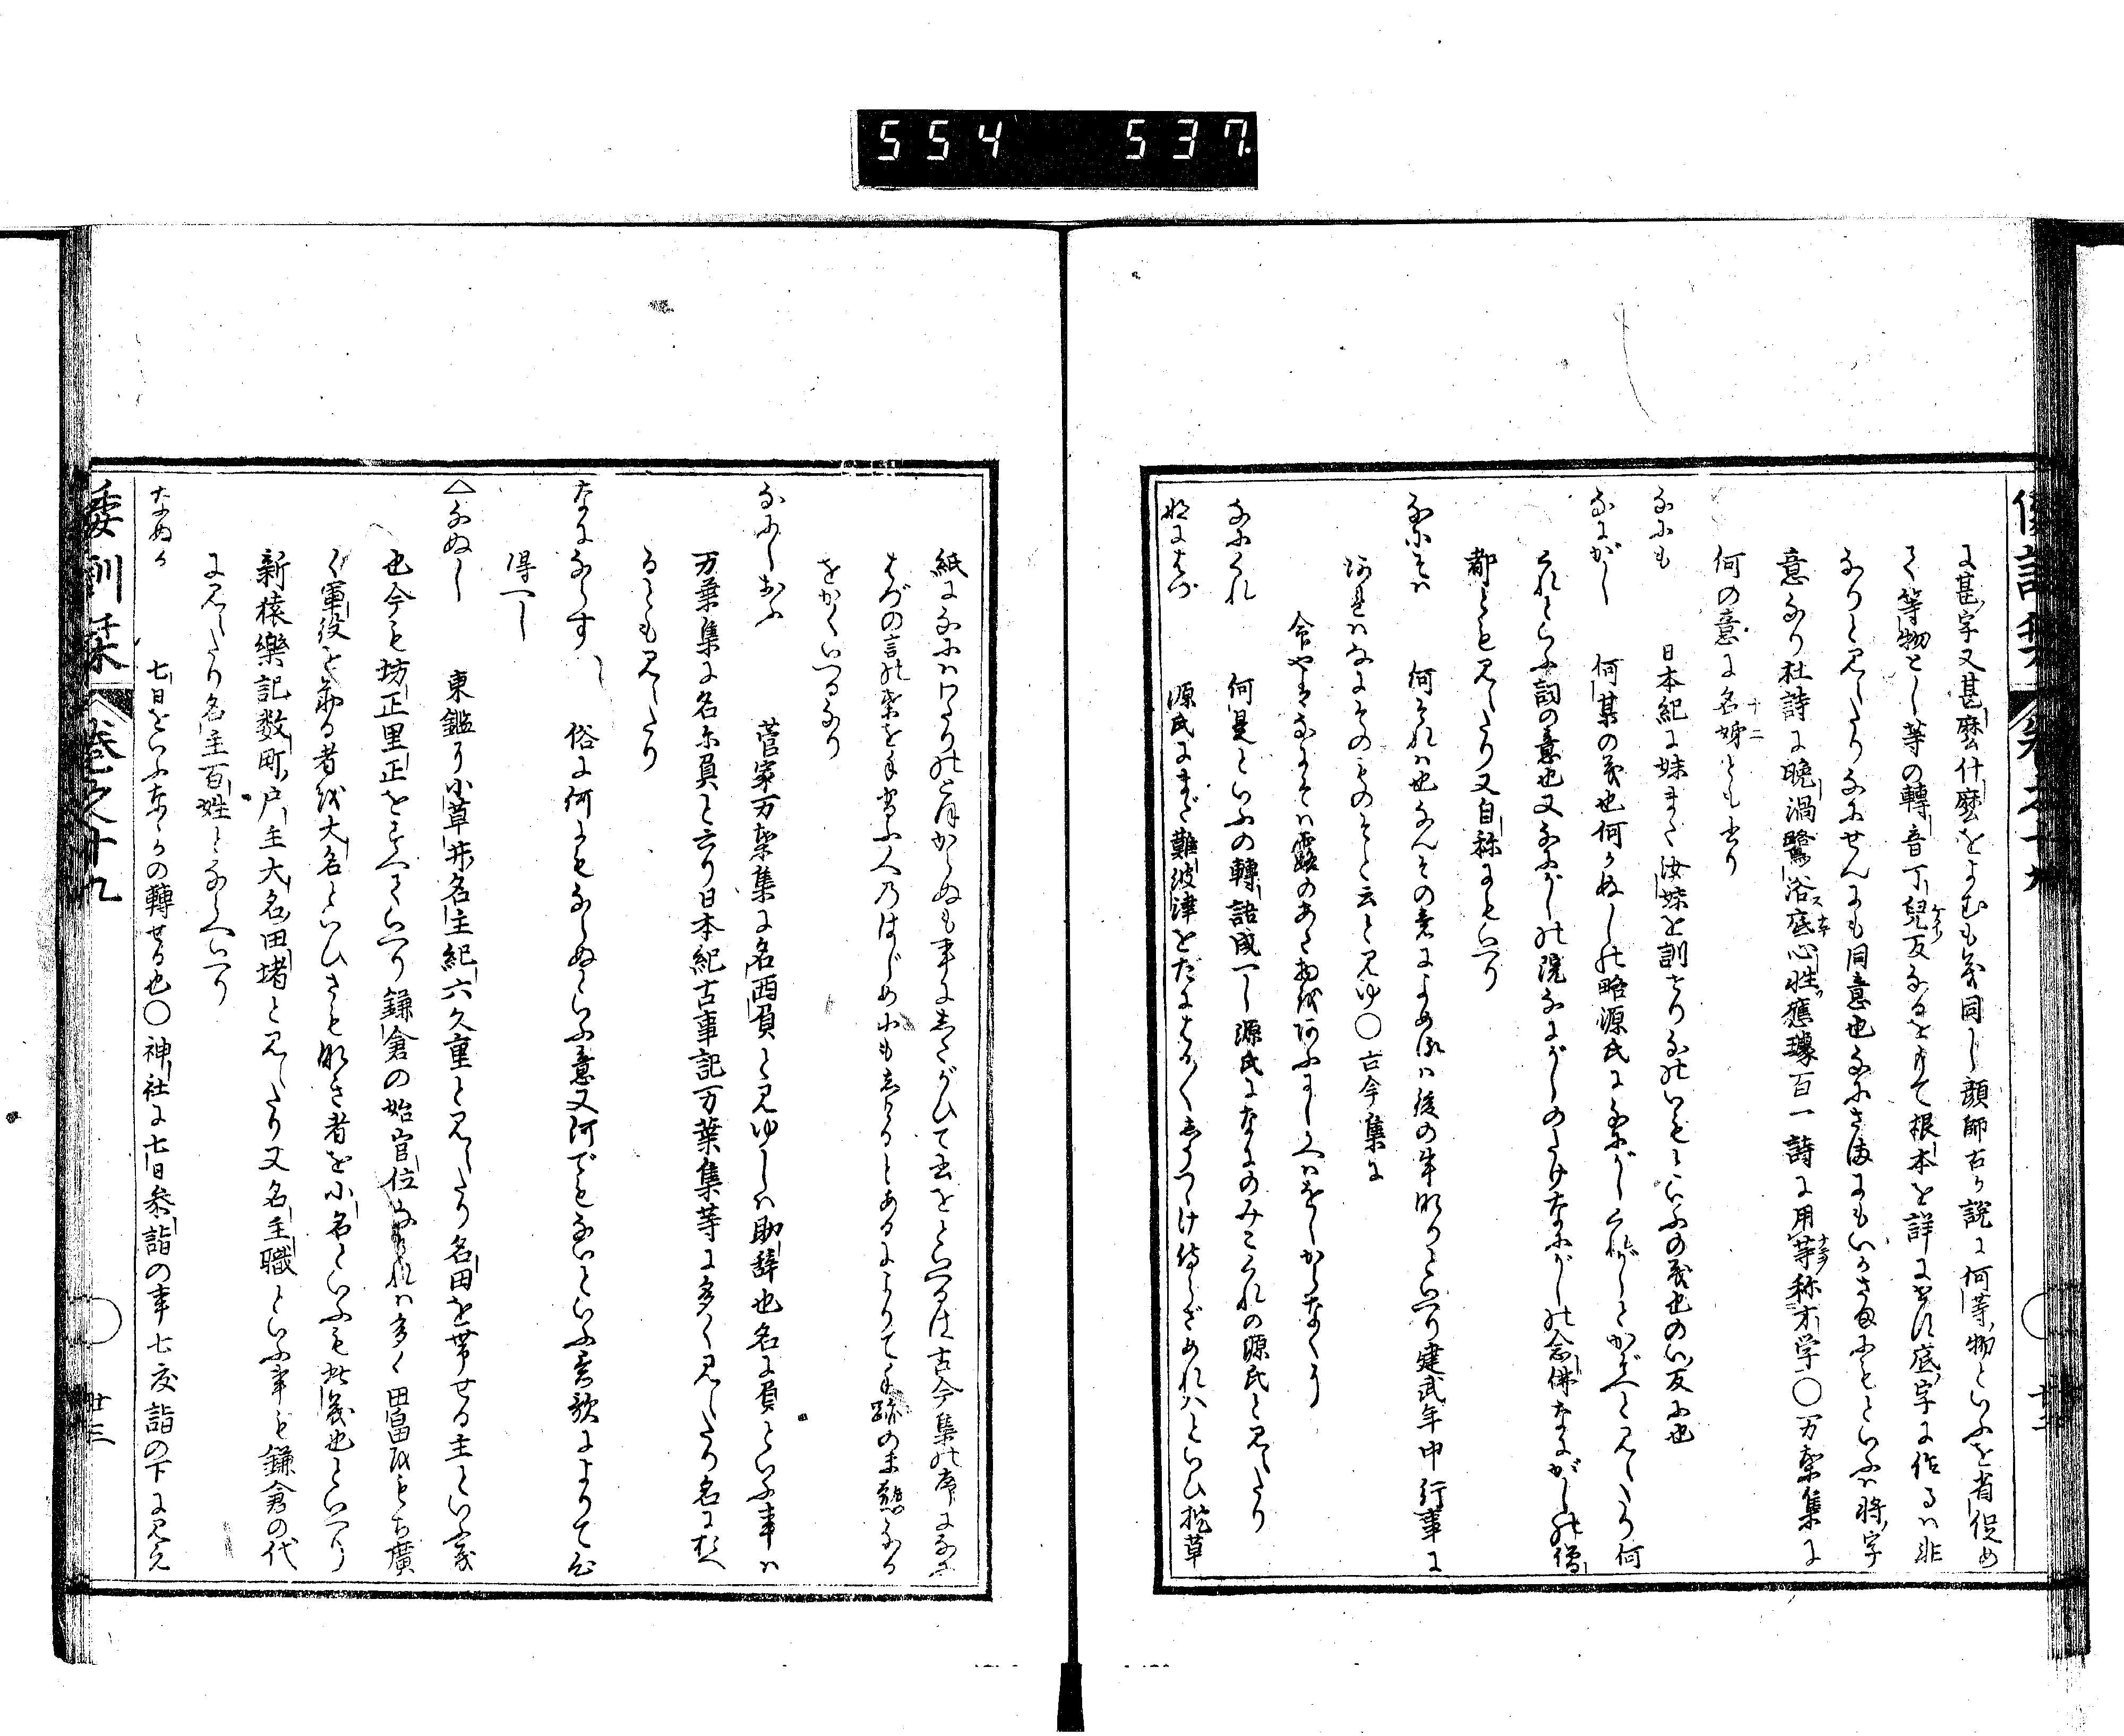 554 537
に甚字又甚麼什麼をよむも義同し顔師古か説に何等物といふを省促め
て等物とし等の轉音丁兒反なるをもて根本を詳にせす底字に作るは非
なりと見えたりなにせんにも同意也なにさまにもいかさまにもといふは將字
意なり杜詩に晩渦鷺浴底心性應璩百一詩に用等称才学〇万葉集に
何の意に名姉とも書り
なにも 日本紀に妹また汝妹を訓せりなのいもといふの義也のい反に也
なにがし 何某の義也何かぬしの略源氏になにがしくれがしとかぞへと見えたり何
くれといふ詞の意也又なにがしの院なにがしのたけなにがしの念佛なにがしの僧
都とも見えたり又自称にもいへり
なにそは 何それは也なんその意によめるは後の事なりといへり建武年中行事に
はなにそのものそと云と見ゆ〇古今集に
命やはなにそは露のあた物をあふにしかへはをしからなくに
なにくれ 何是といふの轉語成へし源氏になにのみこくれの源氏と見えたり
なにはづ 源氏にまだ難波津をだにはかくしうつけ侍らざめれはといひ枕草
紙になにはわたりの遠からぬも事にしたがひて書をといへるは古今集の序になに
はづの言の葉を手習ふ人のはじめにもしけるとあるによりて手跡の未熟なる
をかくいへるなり
なにしおふ 菅家万葉集に名西負と見ゆしは助辞也名に負といふ事は
万葉集に名尓負と云り日本紀古事記万葉集等に多く見えたり名にたへ
るとも見えたり
なにならす 俗に何にもならぬといふ意又何でもないといふ意歌によりて心
得へし
△なぬし 東鑑に小草井名主紀六久重と見えたり名田を帯せる主といふ義
也今も坊正里正をとなへていへり鎌倉の始官位なけれは多く田畠をもち廣
く軍役を勤る者を大名といひさもなき者を小名といふも此義也といへり
新猿樂記数町戸主大名田堵と見えたり又名主職といふ事も鎌倉の代
に見えたり名主百姓とならへいへり
なぬか 七日をいふなゝかの轉せる也〇神社に七日参詣の事七度詣の下に見え
倭訓栞 巻之十九 廿三